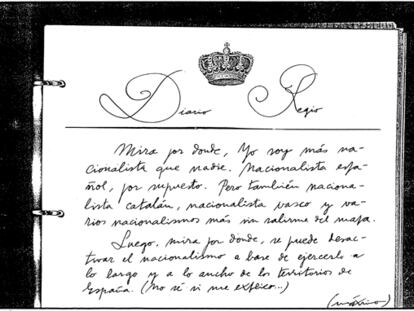 Diario Regio
Mira por donde, Yo soy más na-
cionalista que nadie. Nacionalista espa-
ñol, por supuesto. Pero también naciona-
lista catalán, nacionalista vasco y va-
rios nacionalismos más sin salirme del mapa.
Luego, mira por dónde, se puede desac-
tivar el nacionalismo a base de ejercerlo a
lo largo y a lo ancho de los territorios de
España. (No sé si me explico...)
(máximo)